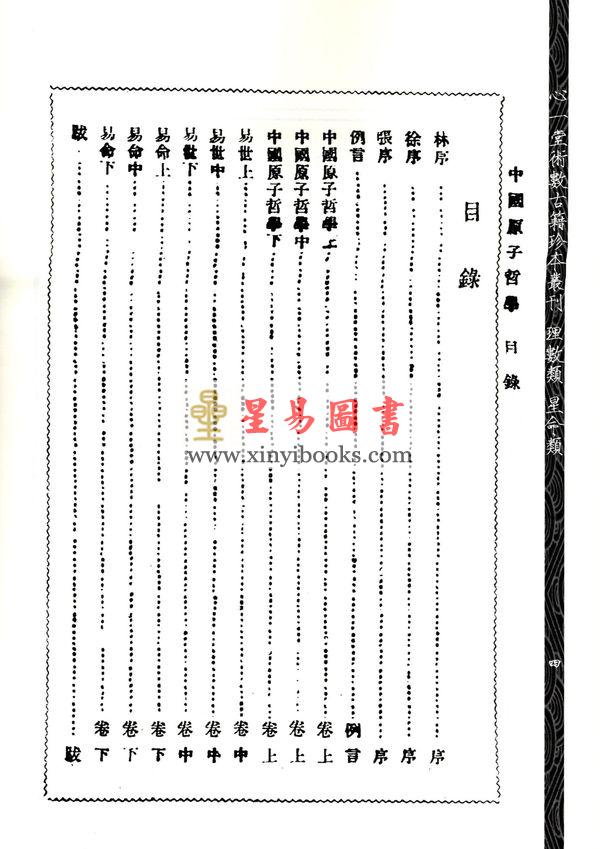 心一堂術數古籍珍本叢刊 理數類 星命類
四
中國原子哲學 目錄
目錄
林序 序
徐序 序
張序 序
例言 例言
中國原子哲學上 卷上
中國原子哲學中 卷上
中國原子哲學下 卷上
易世上 卷中
易世中 卷中
易世下 卷中
易命上 卷下
易命中 卷下
易命下 卷下
跋 跋
星易圖書
www.xinyibooks.com